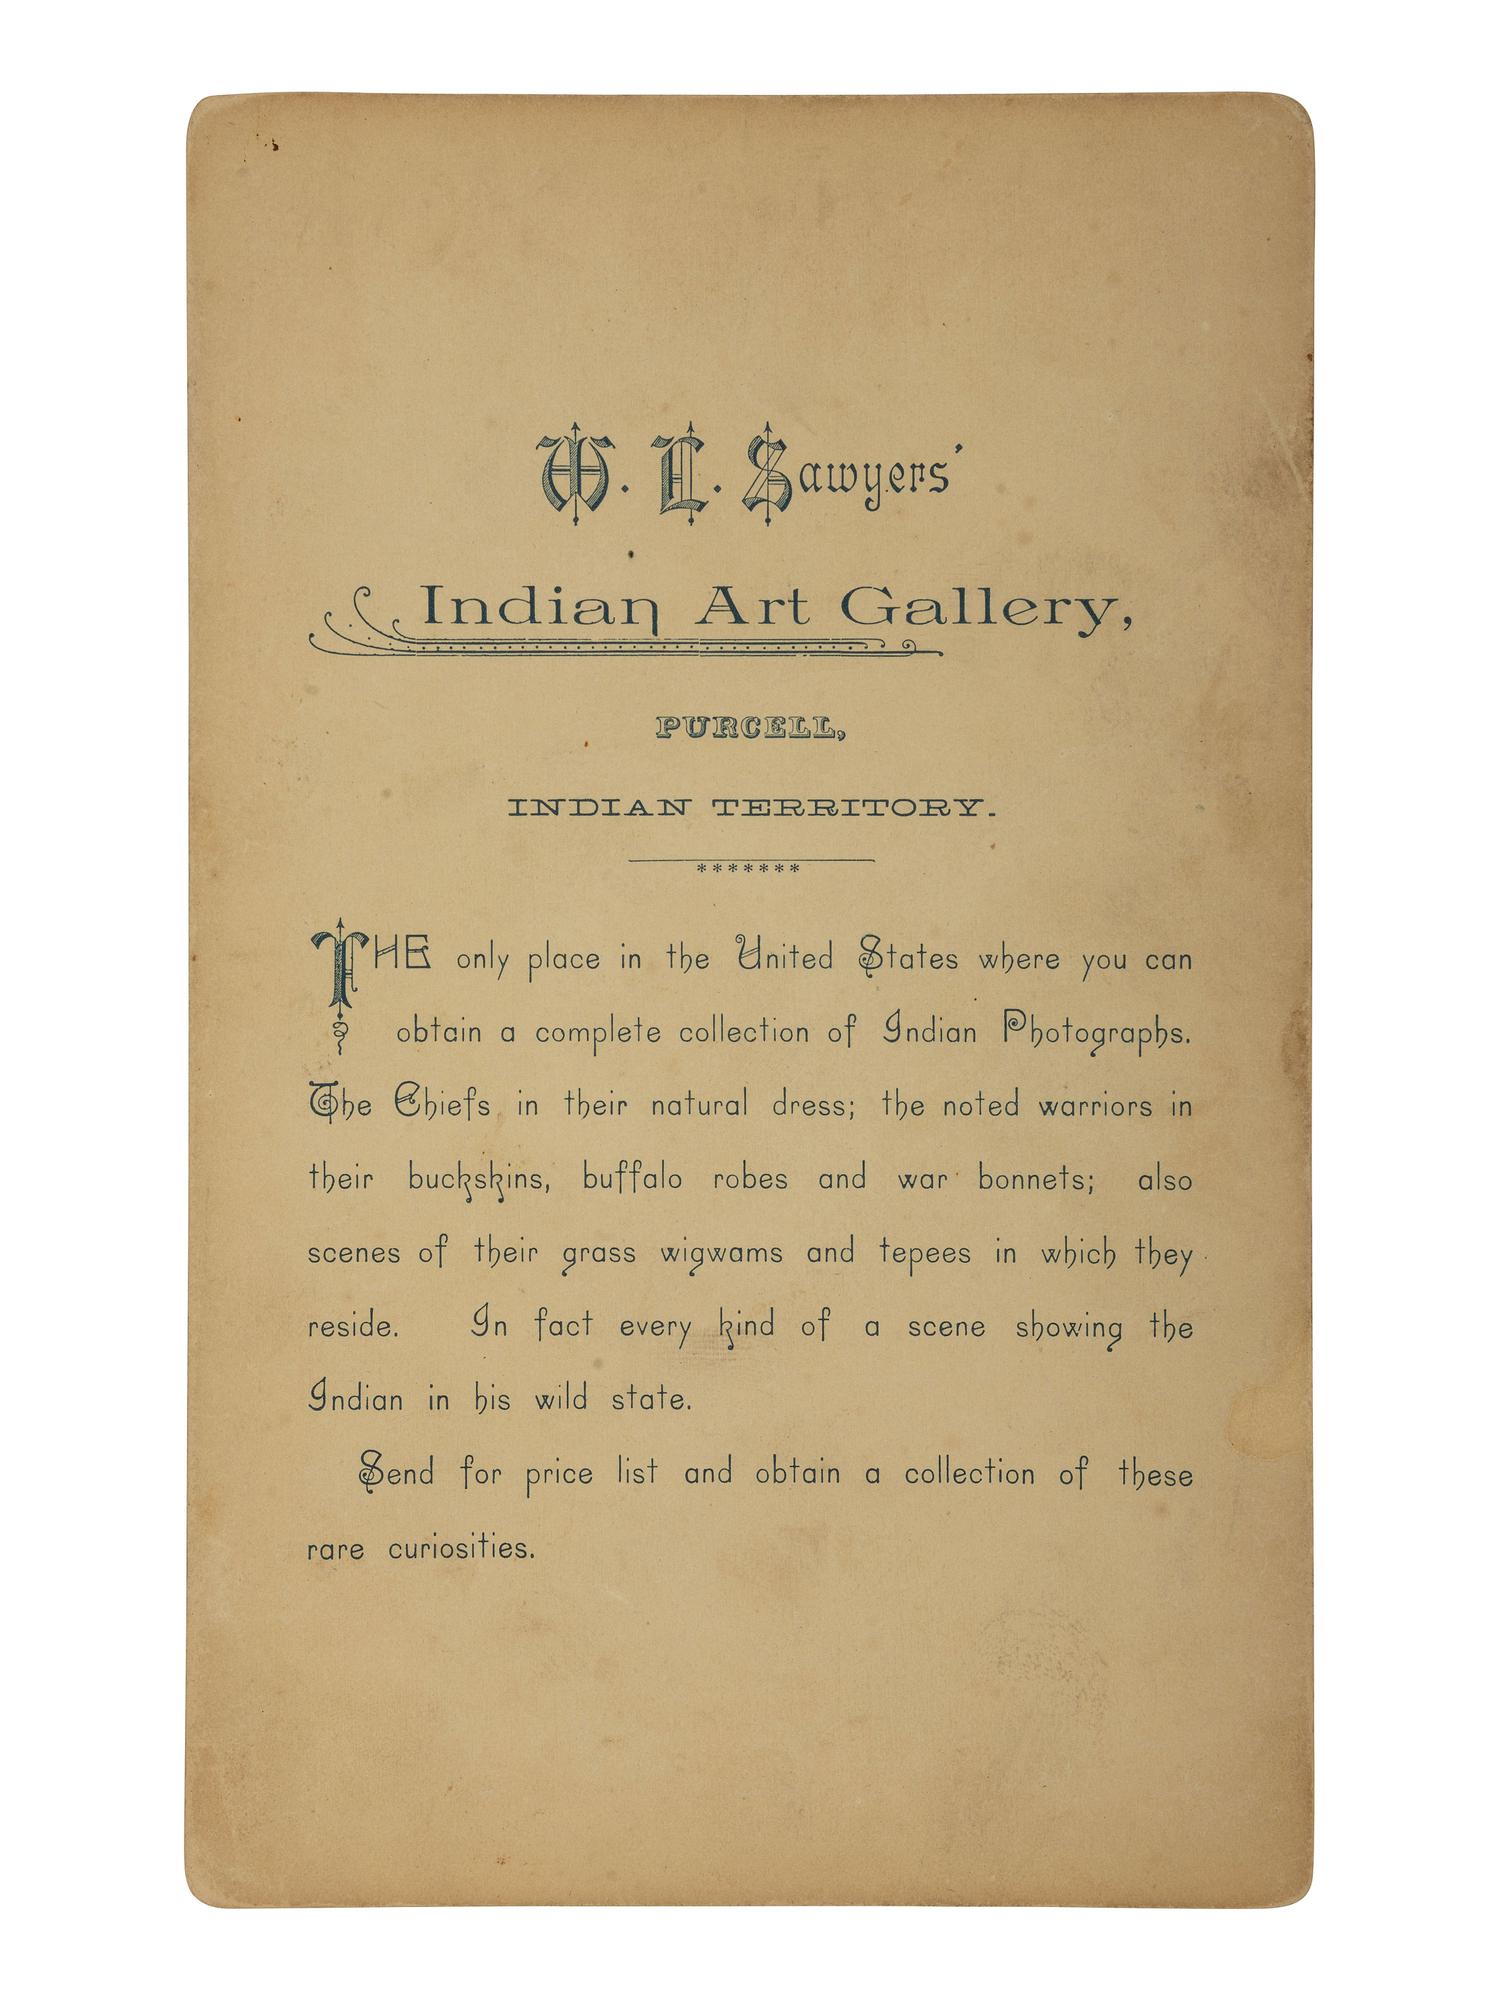 W. L. Sawyers'
Indian Art Gallery,
PURCELL,
INDIAN TERRITORY.
*******
THE only place in the United States where you can
obtain a complete collection of Indian Photographs.
The Chiefs in their natural dress; the noted warriors in
their buckskins, buffalo robes and war bonnets; also
scenes of their grass wigwams and tepees in which they
reside. In fact every kind of a scene showing the
Indian in his wild state.
Send for price list and obtain a collection of these
rare curiosities.